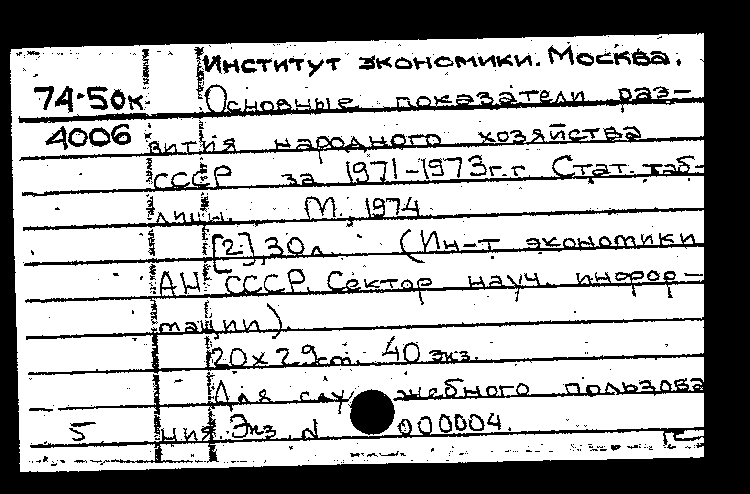 Институт экономики. Москва.
74-50к Основные показатели раз-
4006 вития народного хозяйства
СССР за 1971-1973г.г. Стат. таб-
лицы. М., 1974.
[2], 30 л. (Ин-т экономики
АН СССР. Сектор науч. инфор-
мации).
20x29см. 40 экз.
Для служебного пользова
5 ния. Экз. N 000004.